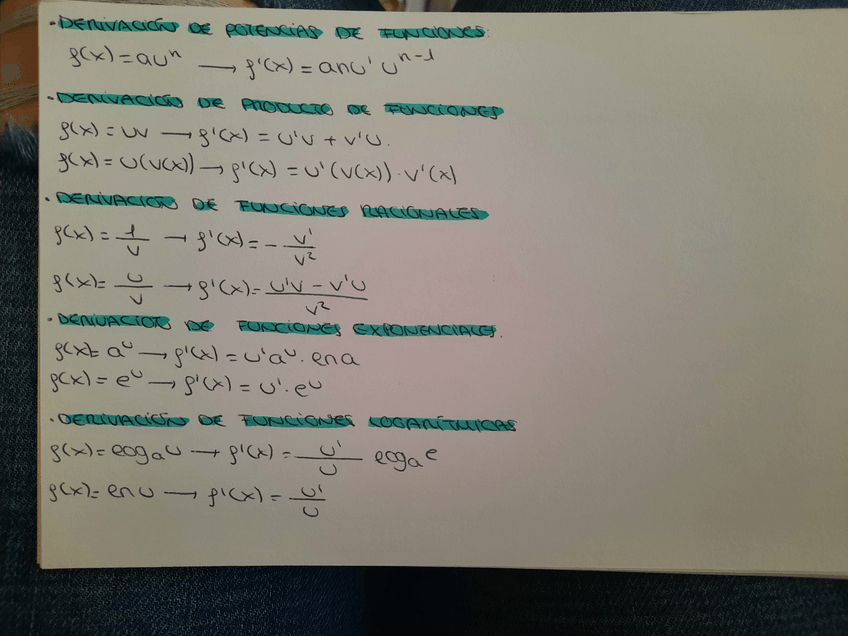 · DERIVACIÓN DE POTENCIAS DE FUNCIONES:
f(x) = auⁿ → f'(x) = anu' uⁿ⁻¹
· DERIVACIÓN DE PRODUCTO DE FUNCIONES
f(x) = uv → f'(x) = u'v + v'u.
f(x) = u(v(x)) → f'(x) = u'(v(x)) · v'(x)
· DERIVACIÓN DE FUNCIONES RACIONALES
f(x) = 1/v → f'(x) = - v'/v²
f(x) = u/v → f'(x) = (u'v - v'u)/v²
· DERIVACIÓN DE FUNCIONES EXPONENCIALES.
f(x) = aᵘ → f'(x) = u'aᵘ · ln a
f(x) = eᵘ → f'(x) = u' · eᵘ
· DERIVACIÓN DE FUNCIONES LOGARÍTMICAS
f(x) = logₐu → f'(x) = u'/u logₐe
f(x) = ln u → f'(x) = u'/u